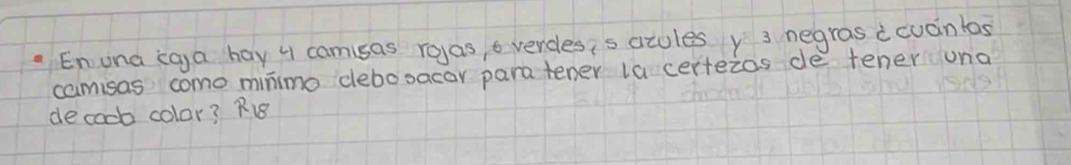 • En una caja hay 4 camisas rojas, 6 verdes, 5 azules y 3 negras ¿cuántas
camisas como mínimo debo sacar para tener la certezas de tener una
de cada color? R18